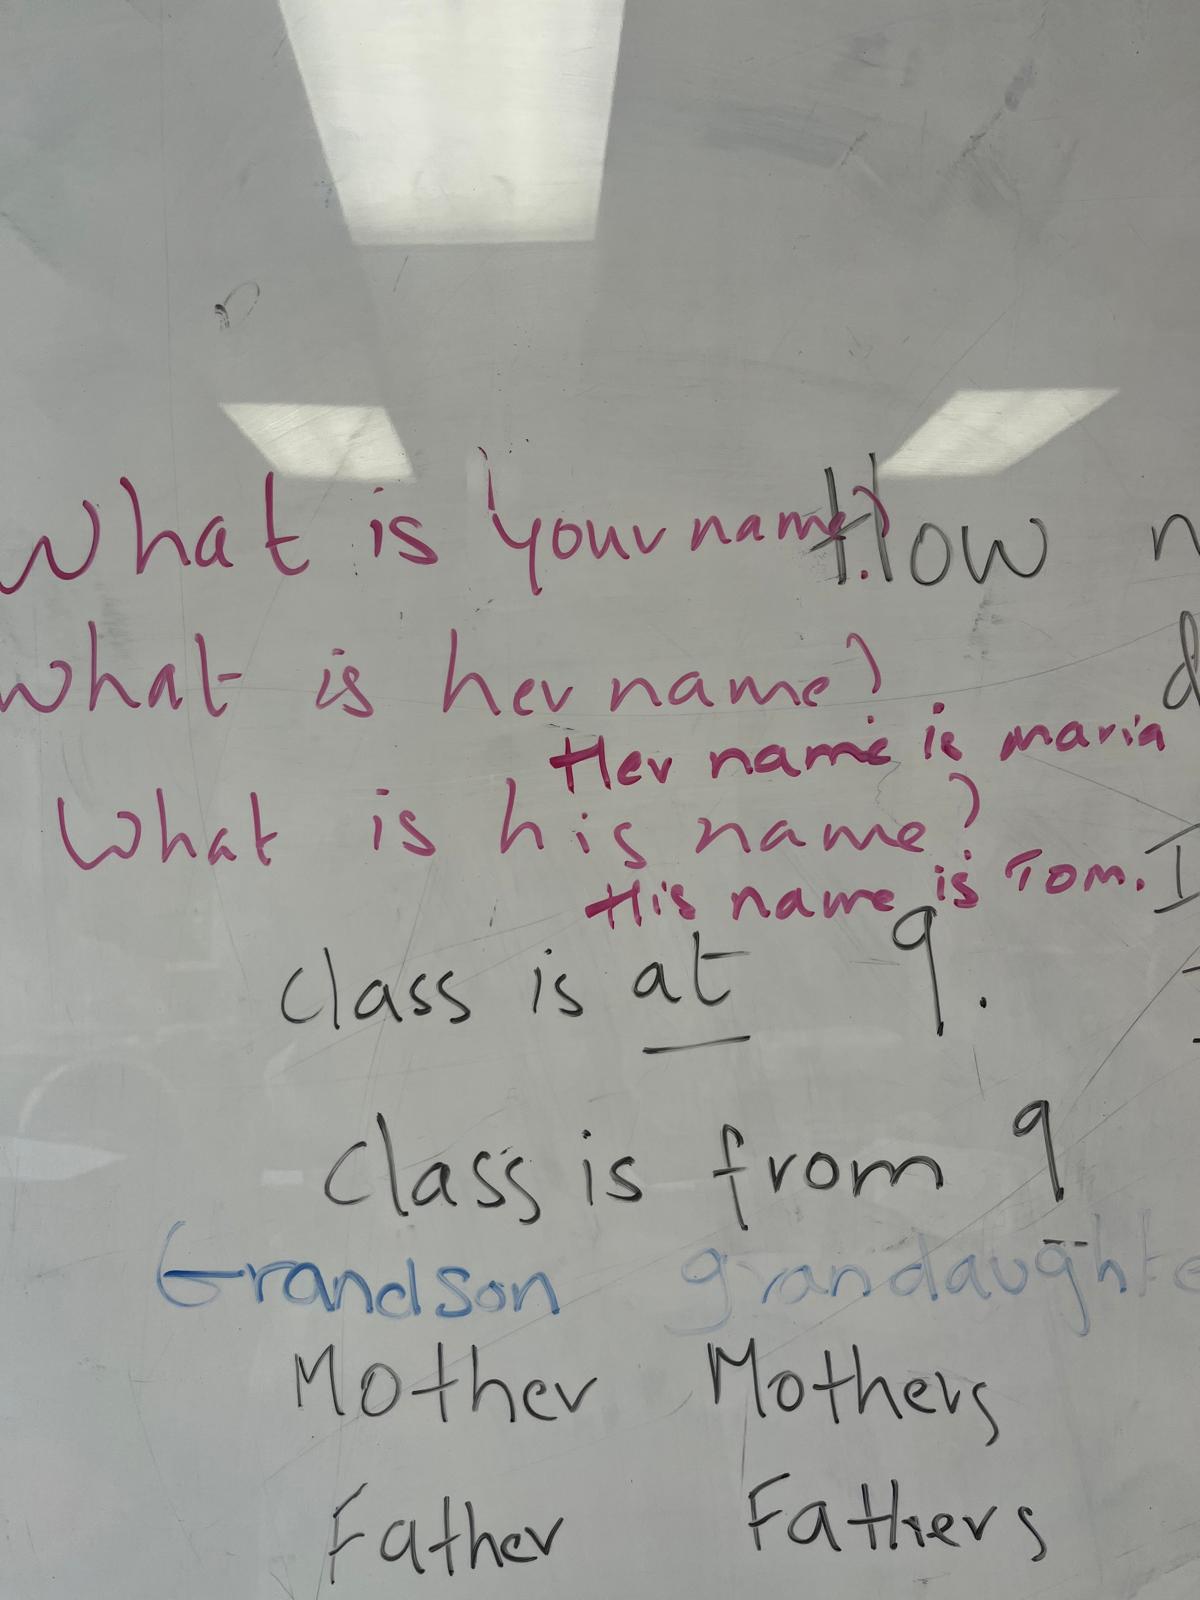 What is your name? How
What is her name?
Her name is maria
What is his name?
His name is Tom. I
Class is at 9.
Class is from 9
Grandson grandaughte
Mother Mothers
Father Fathers